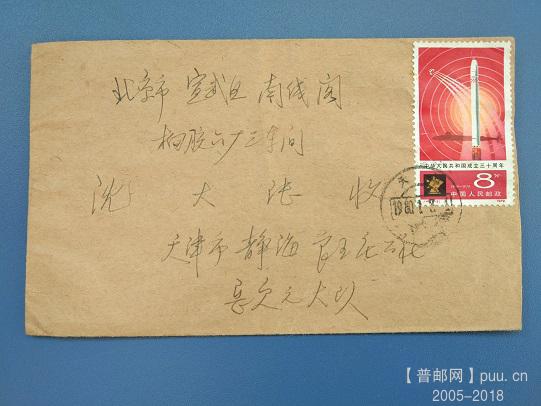 北京市 宣武区 南线阁
橡胶六厂三车间
沈 大 陆 收
天津市 静海 良王庄公社
大队
中华人民共和国成立三十周年
8分
中国人民邮政
1980.1
【普邮网】puu.cn
2005-2018